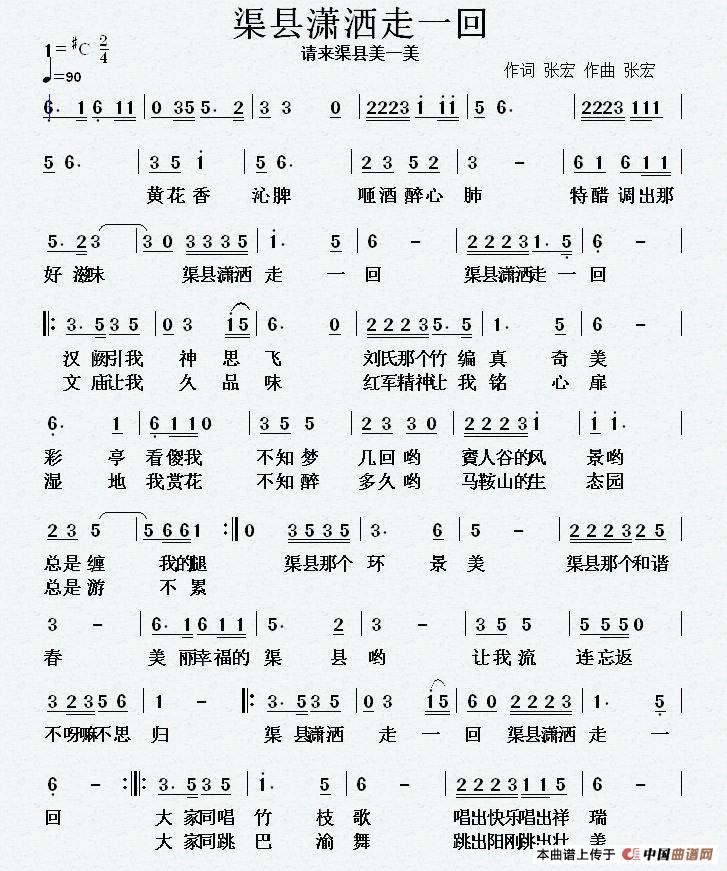 渠县潇洒走一回
请来渠县美一美
1=#C 2/4
♩=90
作词 张宏 作曲 张宏
6. 1 6 1 1 | 0 3 5 5. 2 | 3 3 0 | 2 2 2 3 1 1 1 | 5 6. | 2 2 2 3 1 1 1 |
5 6. | 3 5 1 | 5 6. | 2 3 5 2 | 3 - | 6 1 6 1 1 |
黄花香 沁脾 咂酒醉心 肺 特醋调出那
5. 2 3 | 3 0 3 3 3 5 | 1. 5 | 6 - | 2 2 2 3 1. 5 | 6 - |
好滋味 渠县潇洒 走 一 回 渠县潇洒走一 回
|: 3. 5 3 5 | 0 3 1 5 | 6. 0 | 2 2 2 3 5. 5 | 1. 5 | 6 - |
汉阙引我 神思 飞 刘氏那个竹编 真 奇 美
文庙让我 久品 味 红军精神让我 铭 心 扉
6. 1 | 6 1 1 0 | 3 5 5 | 2 3 3 0 | 2 2 2 3 1 | 1 1. |
彩 亭 看傻我 不知梦 几回哟 賨人谷的风 景哟
湿 地 我赏花 不知醉 多久哟 马鞍山的生 态园
2 3 5 | 5 6 6 1 :| 0 3 5 3 5 | 3. 6 | 5 - | 3 2 2 3 2 5 |
总是缠 我的腿 渠县那个 环 景 美 渠县那个和谐
总是游 不累
3 - | 6. 1 6 1 1 | 5. 2 | 3 - | 3 5 5 | 5 5 5 0 |
春 美丽幸福的 渠 县 哟 让我流 连忘返
3 2 3 5 6 | 1 - |: 3. 5 3 5 | 0 3 1 5 | 6 0 2 2 2 3 | 1. 5 |
不呀嘛不思 归 渠县潇洒 走一 回 渠县潇洒 走 一
6 - :|: 3. 5 3 5 | 1. 5 | 6 - | 2 2 2 3 1 1 5 | 6 - |
回 大家同唱 竹 枝 歌 唱出快乐唱出祥 瑞
大家同跳 巴 渝 舞 跳出阳刚跳出壮 美
本曲谱上传于 中国曲谱网